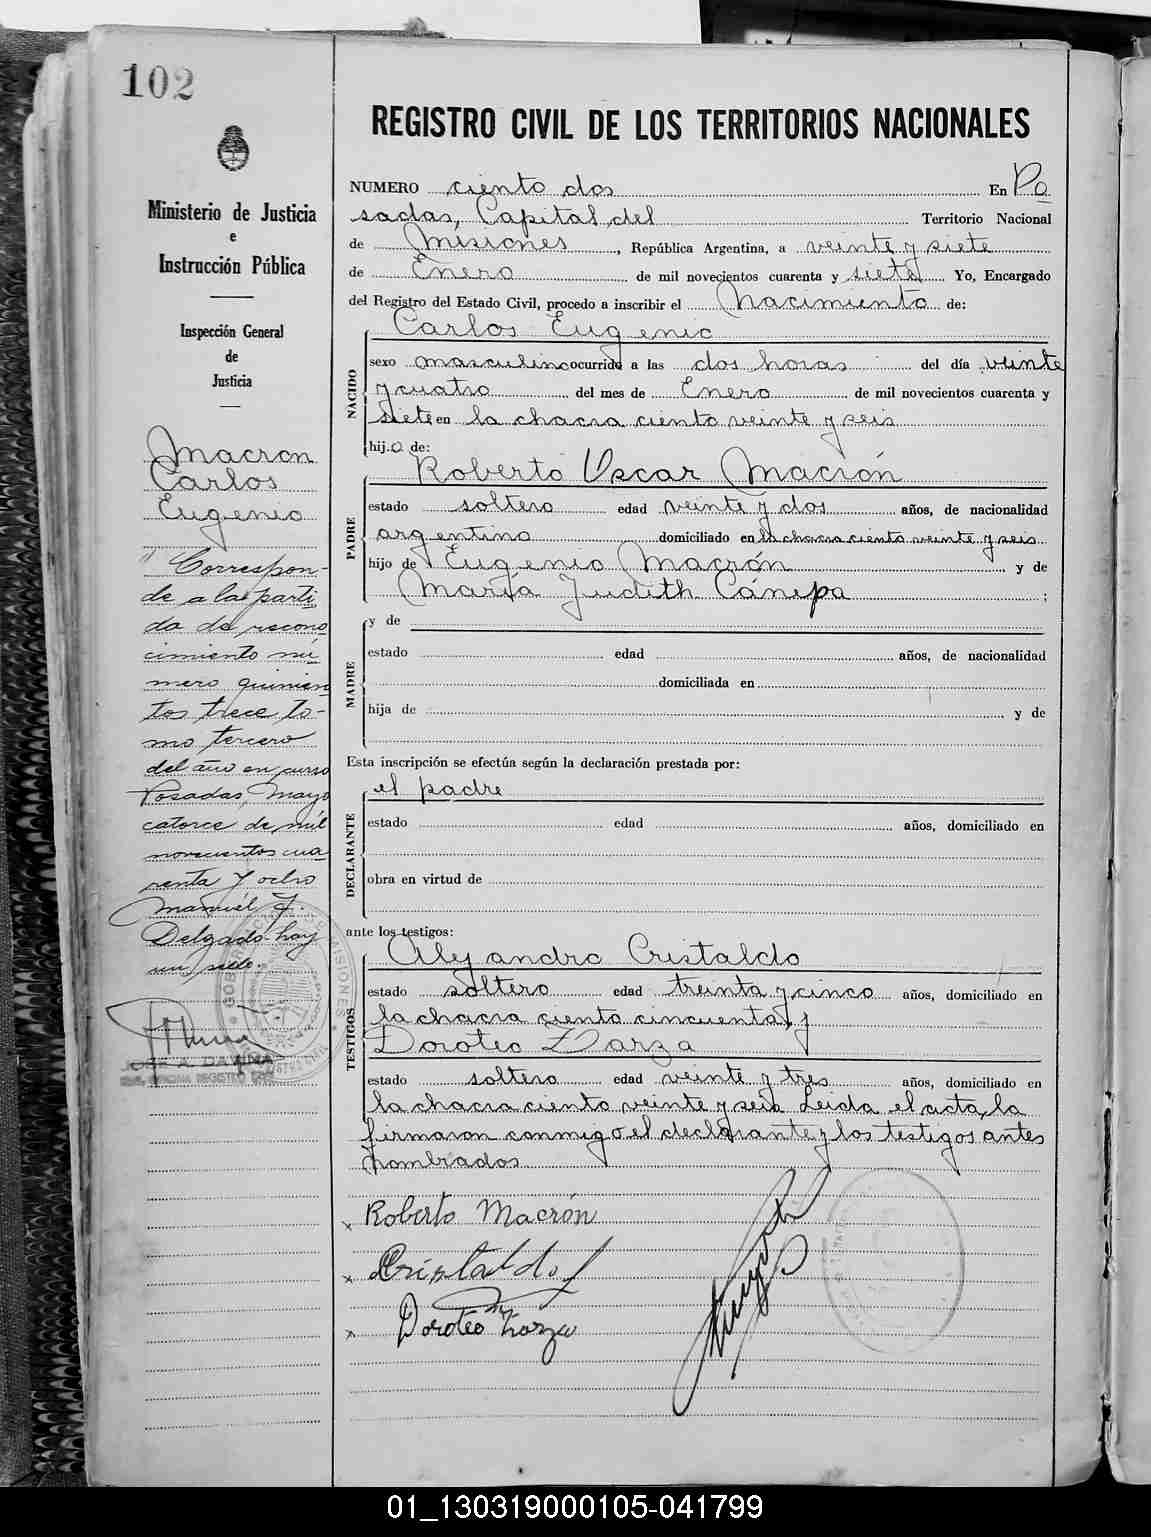 102
Ministerio de Justicia
e
Instrucción Pública
Inspección General
de
Justicia
Macron
Carlos
Eugenio
Correspon-
de a la parti
da de recono
cimiento nú
mero quinien
tos trece to-
mo tercero
del año en curso
Posadas, Mayo
catorce de mil
novecientos cua
renta y ocho
Manuel J.
Delgado hay
un sello.
JOSE A. DAVIÑA
REGISTRO CIVIL DE LOS TERRITORIOS NACIONALES
NUMERO ciento dos En Po
sadas, Capital del Territorio Nacional
de Misiones, República Argentina, a veinte y siete
de Enero de mil novecientos cuarenta y siete Yo, Encargado
del Registro del Estado Civil, procedo a inscribir el Nacimiento de:
NACIDO
Carlos Eugenio
sexo masculino ocurrido a las dos horas del día veinte
y cuatro del mes de Enero de mil novecientos cuarenta y
siete en la chacra ciento veinte y seis
hijo de:
PADRE
Roberto Oscar Macrón
estado soltero edad veinte y dos años, de nacionalidad
argentino domiciliado en la chacra ciento veinte y seis
hijo de Eugenio Macrón y de
María Judith Cánepa ;
MADRE
y de
estado edad años, de nacionalidad
domiciliada en
hija de y de
Esta inscripción se efectúa según la declaración prestada por:
DECLARANTE
el padre
estado edad años, domiciliado en
obra en virtud de
ante los testigos:
TESTIGOS
Alejandro Cristaldo
estado soltero edad treinta y cinco años, domiciliado en
la chacra ciento cincuenta, y
Doroteo Zarza
estado soltero edad veinte y tres años, domiciliado en
la chacra ciento veinte y seis Leida el acta, la
firmaron conmigo el declarante y los testigos antes
nombrados
x Roberto Macrón
x Cristaldo
x Doroteo Zarza
01_130319000105-041799